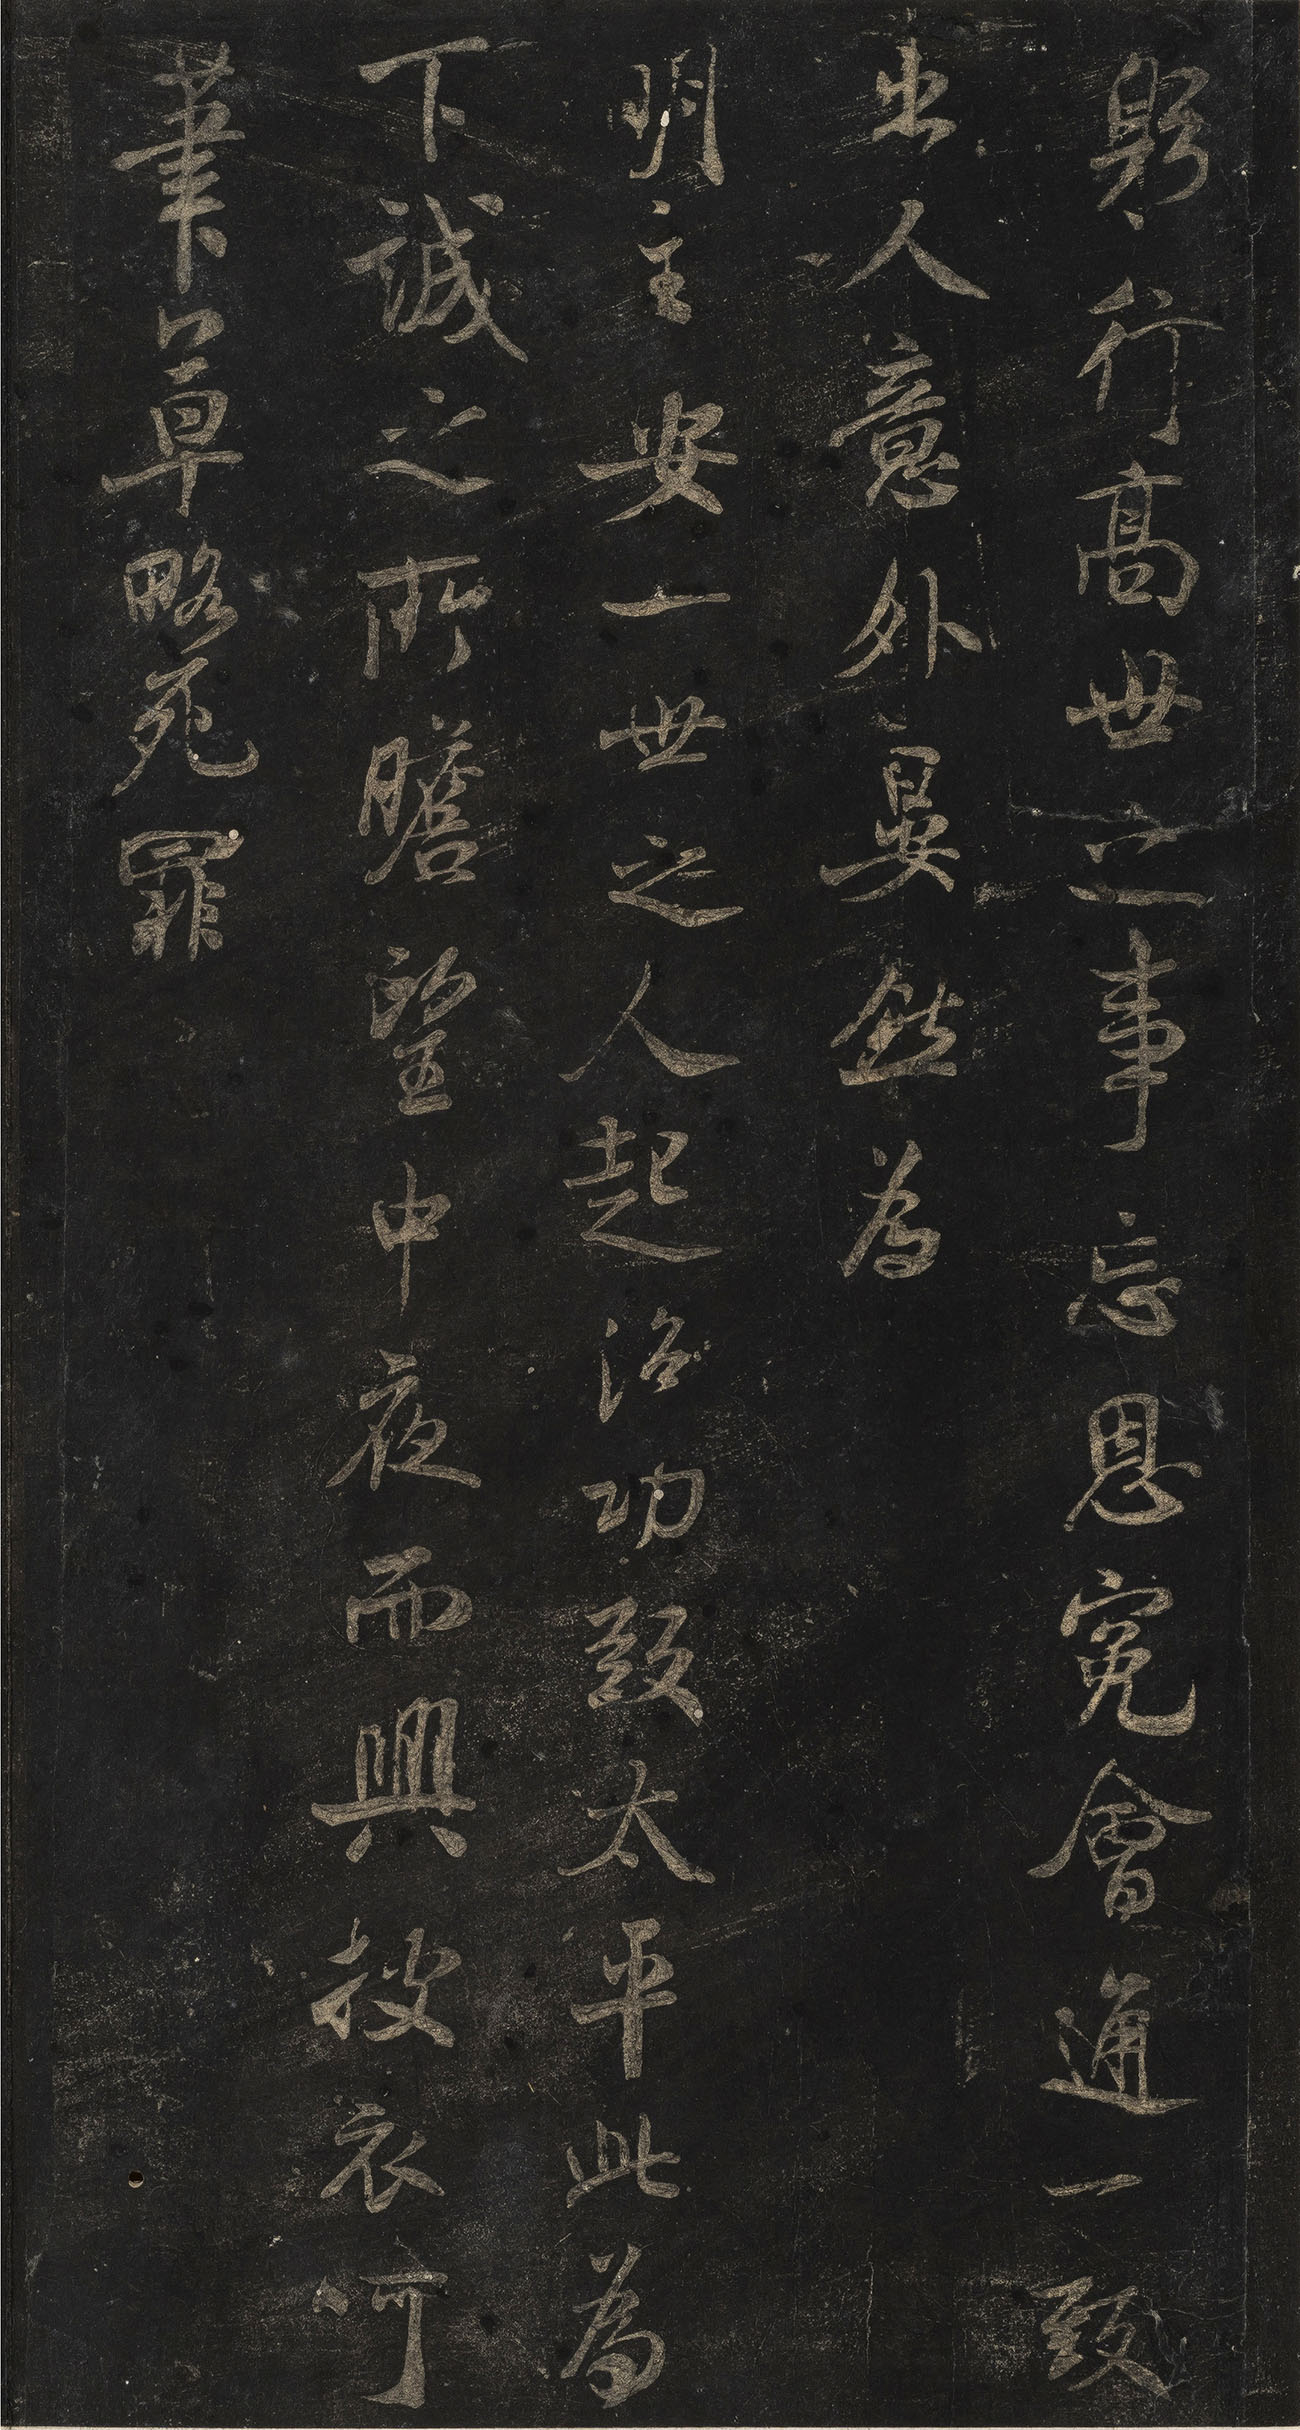 躬行高世之事忘恩冤會通一致
出人意外晏然為
明主安一世之人起治功致太平此為
下誠之所瞻望中夜而興披衣呵
筆草略死罪